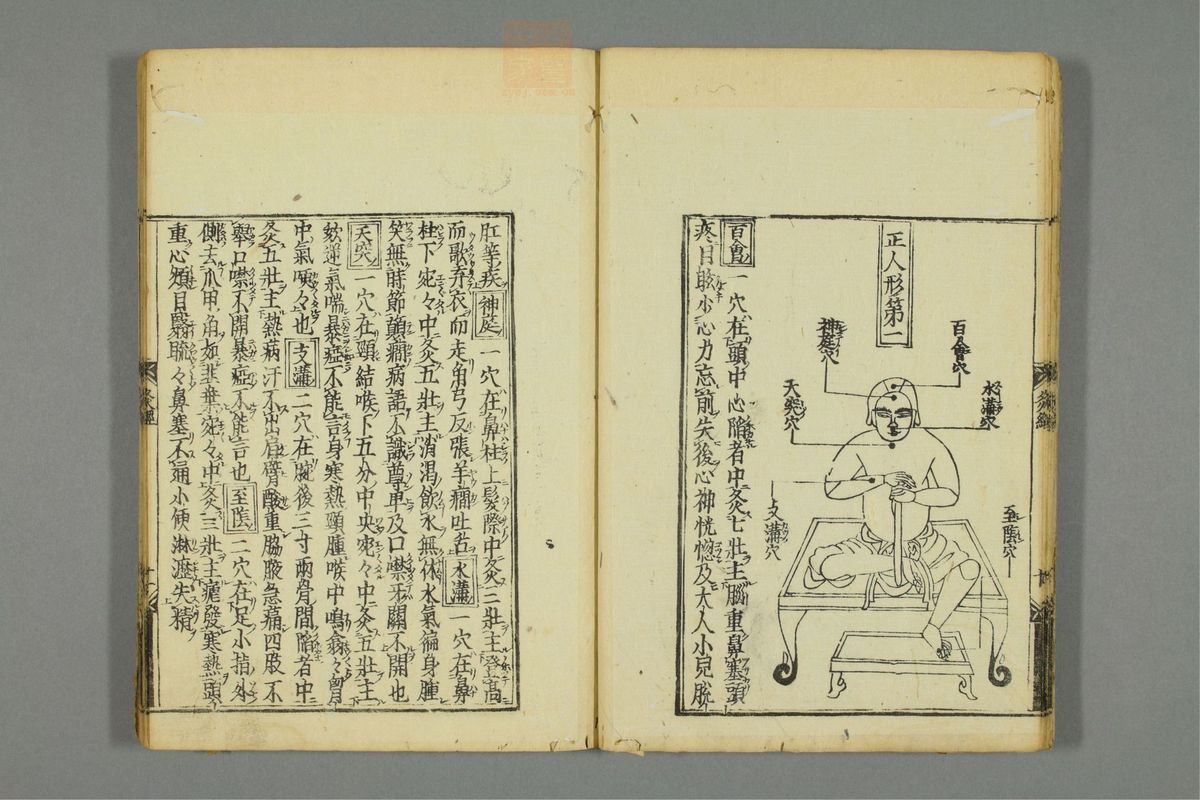 正人形第二
百會穴
水溝穴
神庭穴
天突穴
支溝穴
至陰穴
百會一穴在頭中心陷者中灸七壯主腦重鼻塞頭
疼目眩少心力忘前失後心神恍惚及大人小兒脫
肛等疾神庭一穴在鼻柱上髮際中灸三壯主登高
而歌弃衣而走角弓反張羊癎吐舌水溝一穴在鼻
柱下宛々中灸五壯主消渴飲水無休水氣徧身腫
笑無時節顛癎病語不識尊卑及口噤牙關不開也
天突一穴在頸結喉下五分中央宛々中灸五壯主
欬逆氣喘暴瘂不能言身寒熱頸腫喉中鳴翕々胷
中氣哽々也支溝二穴在腕後三寸兩骨間陷者中
灸五壯主熱病汗不出肩臂酸重脇腋急痛四肢不
舉口噤不開暴瘂不能言也至陰二穴在足小指外
側去爪甲角如韭葉宛々中灸三壯主瘧發寒熱頭
重心煩目翳䀮々鼻塞不通小便淋瀝失精